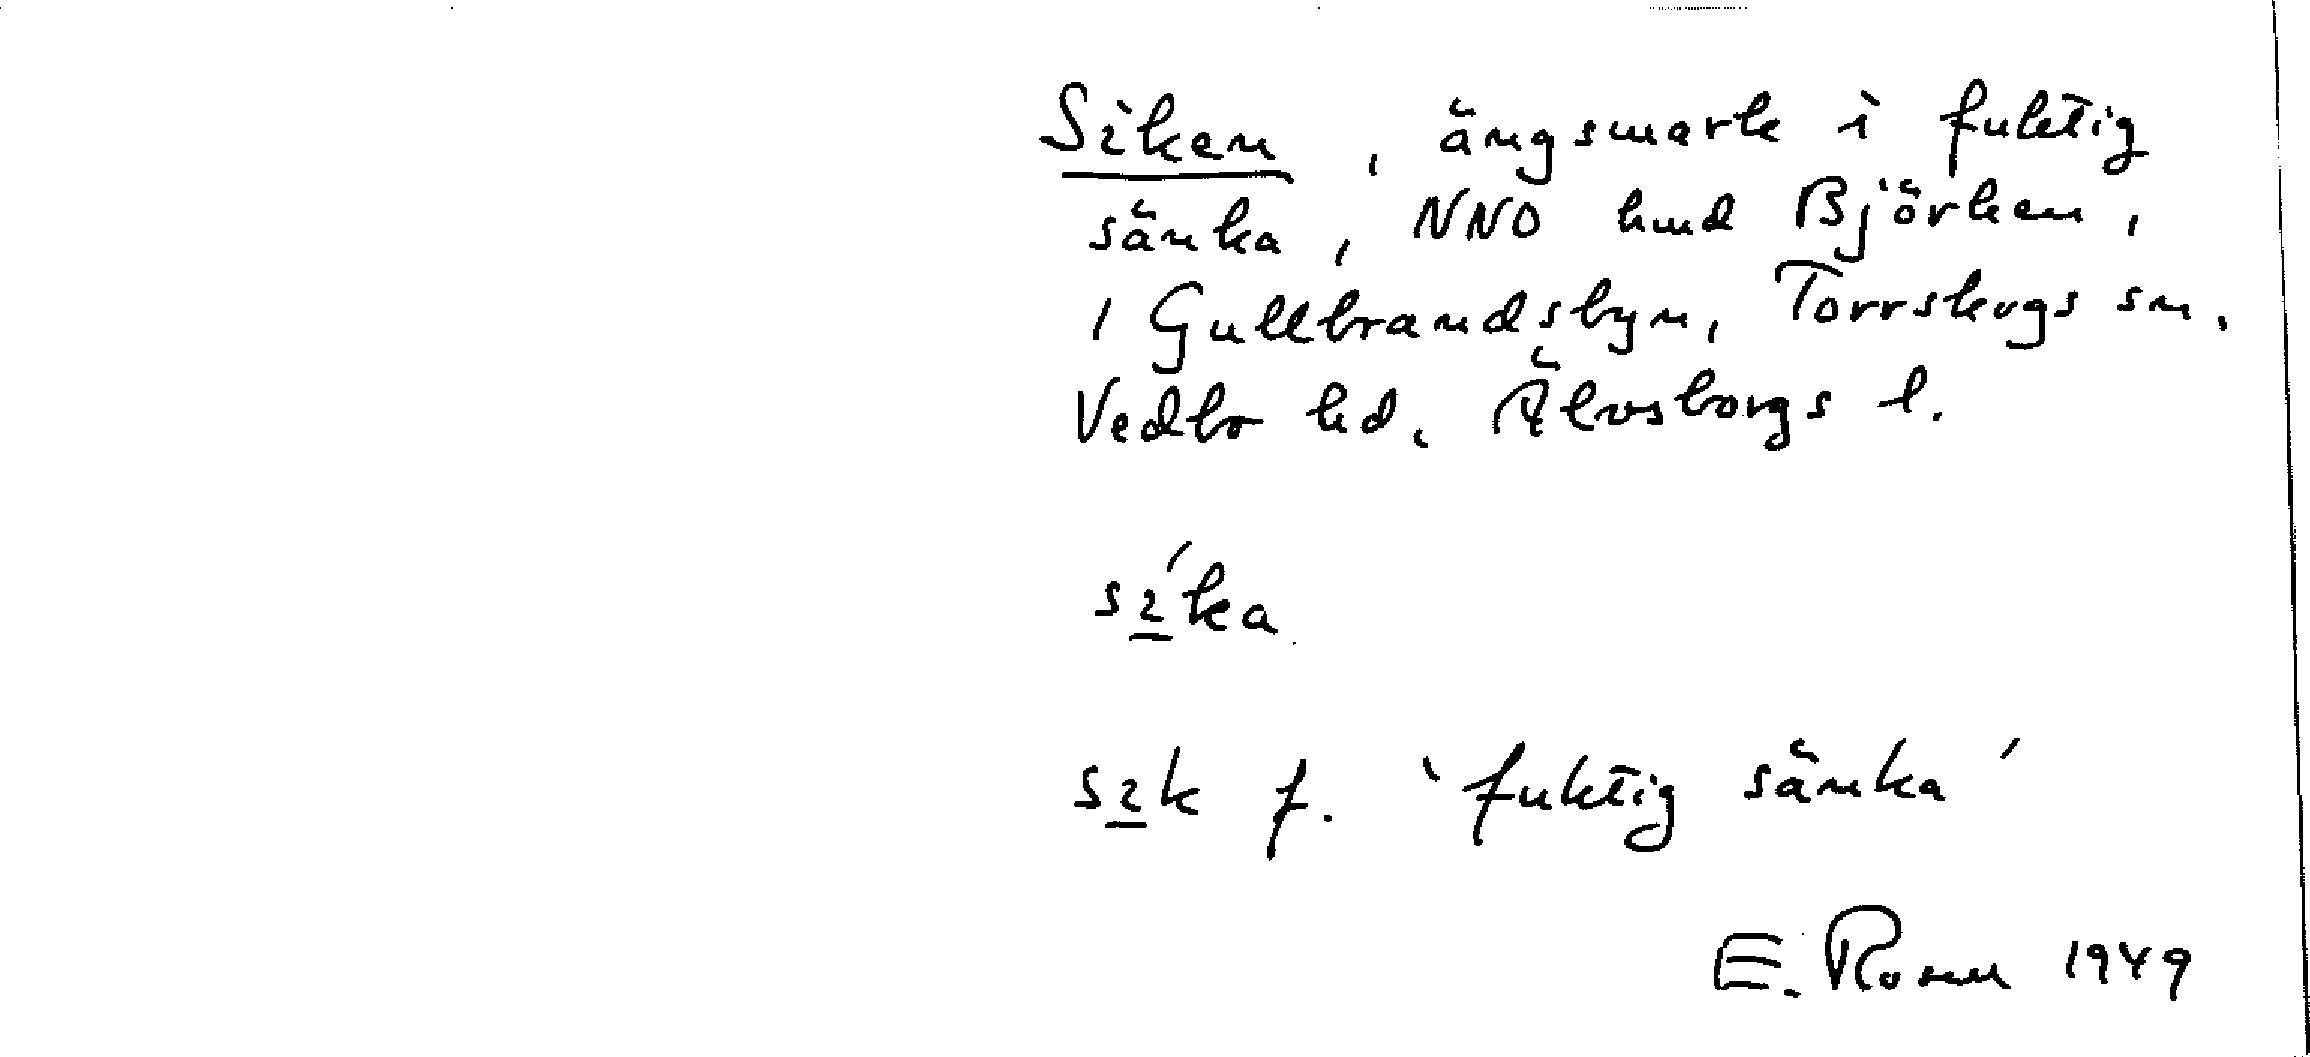 Siken, ängsmark i fuktig
sänka, NNO hmd Björken,
i Gullbrandsbyn, Torrskogs sn.
Vedbo hd. Älvsborgs l.
si̱´ka
si̱k f. ‘fuktig sänka’
E. Rosen 1949